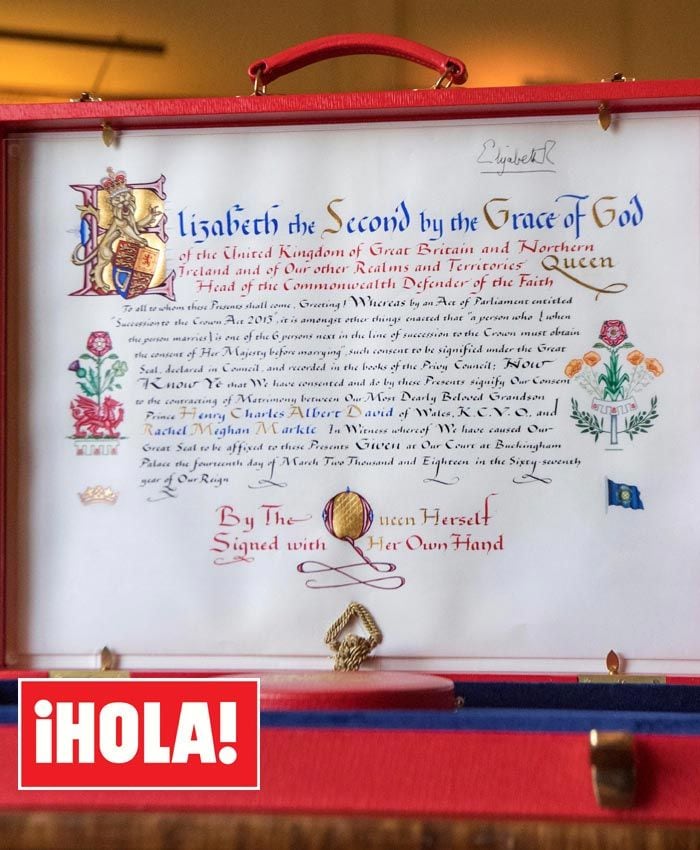 Elizabeth R
Elizabeth the Second by the Grace of God
of the United Kingdom of Great Britain and Northern
Ireland and of Our other Realms and Territories Queen
Head of the Commonwealth Defender of the Faith
To all to whom these Presents shall come, Greeting! Whereas by an Act of Parliament entitled
"Succession to the Crown Act 2013", it is amongst other things enacted that "a person who { when
the person marries } is one of the 6 persons next in the line of succession to the Crown must obtain
the consent of Her Majesty before marrying", such consent to be signified under the Great
Seal, declared in Council, and recorded in the books of the Privy Council; Now
Know Ye that We have consented and do by these Presents signify Our Consent
to the contracting of Matrimony between Our Most Dearly Beloved Grandson
Prince Henry Charles Albert David of Wales, K.C.V.O, and
Rachel Meghan Markle In Witness whereof We have caused Our
Great Seal to be affixed to these Presents Given at Our Court at Buckingham
Palace the fourteenth day of March Two Thousand and Eighteen in the Sixty-seventh
year of Our Reign
By The Queen Herself
Signed with Her Own Hand
¡HOLA!